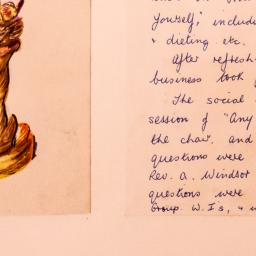 Yourself," includi
& dieting etc.
After refresh
business took
The social
session of "Any
the chair, and
questions were
Rev. A. Windsor
questions were
Group W.I's, &